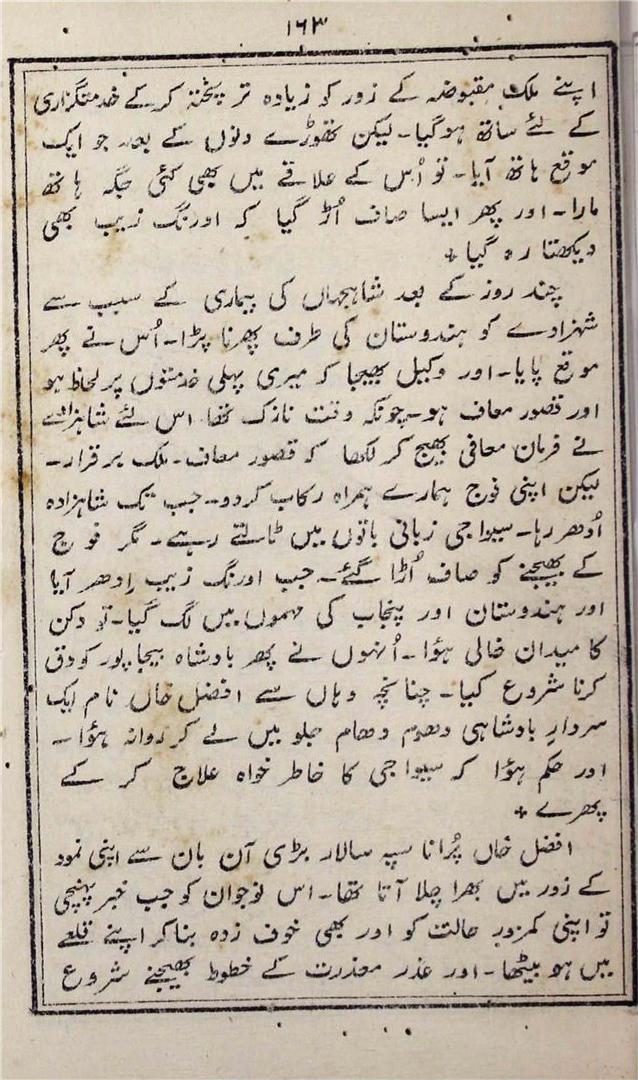 ۱۶۳
اپنے ملک مقبوضہ کے زور کو زیادہ تر پختہ کر کے خدمتگزاری
کے لئے ساتھ ہو گیا۔ لیکن تھوڑے دنوں کے بعد جو ایک
موقع ہاتھ آیا۔ تو اُس کے علاقے میں بھی کئی جگہ ہاتھ
مارا۔ اور پھر ایسا صاف اُڑ گیا کہ اورنگ زیب بھی
دیکھتا رہ گیا +
چند روز کے بعد شاہجہاں کی بیماری کے سبب سے
شہزادے کو ہندوستان کی طرف پھرنا پڑا۔ اُس نے پھر
موقع پایا۔ اور وکیل بھیجا کہ میری پہلی خدمتوں پر لحاظ ہو
اور قصور معاف ہو۔ چونکہ وقت نازک تھا۔ اس لئے شاہزادے
نے فرمان معافی بھیج کر لکھا کہ قصور معاف۔ ملک برقرار۔
لیکن اپنی فوج ہمارے ہمراہ رکاب کردو۔ جب تک شاہزادہ
اُدھر رہا۔ سیواجی زبانی باتوں میں ٹالتے رہے۔ مگر فوج
کے بھیجنے کو صاف اُڑا گئے۔ جب اورنگ زیب اِدھر آیا
اور ہندوستان اور پنجاب کی مہموں میں لگ گیا۔ تو دکن
کا میدان خالی ہؤا۔ اُنہوں نے پھر بادشاہ بیجاپور کو دق
کرنا شروع کیا۔ چنانچہ وہاں سے افضل خاں نام ایک
سردارِ بادشاہی دھوم دھام جلو میں لے کر روانہ ہؤا۔
اور حکم ہؤا کہ سیواجی کا خاطر خواہ علاج کر کے
پھرے +
افضل خاں پُرانا سپہ سالار بڑی آن بان سے اپنی نمود
کے زور میں بھرا چلا آتا تھا۔ اس نوجوان کو جب خبر پہنچی
تو اپنی کمزور حالت کو اور بھی خوف زدہ بنا کر اپنے قلعے
میں ہو بیٹھا۔ اور عذر معذرت کے خطوط بھیجنے شروع